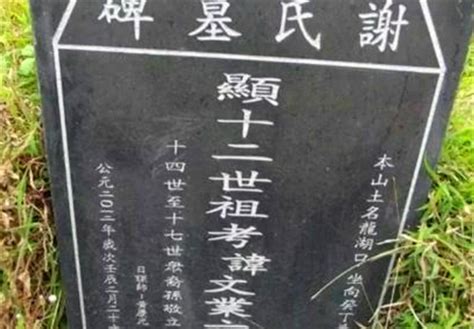 謝氏墓碑
本山土名龍湖口 坐向癸丁
顯十二世祖考諱文業
十四世至十七世衆裔孫敬立
公元二〇一二年歲次壬辰二月二十